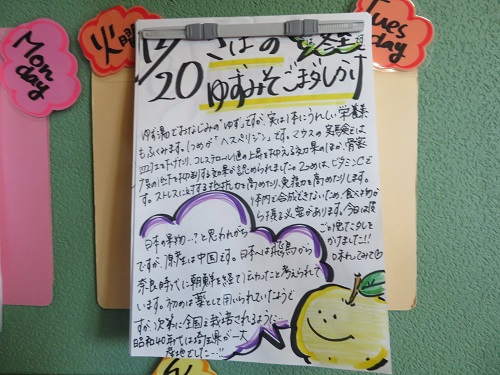 Mon day
火曜
Tues day
12/20
さばの
ゆずみそごまダレかけ
ゆず湯でおなじみの「ゆず」ですが、実は体にうれしい栄養素
もふくみます。1つめが「ヘスペリジン」です。マウスの実験では
血圧を下げたり、コレステロール値の上昇を抑える効果のほか、骨密
度の低下を抑制する効果が認められました。2つめは、ビタミンCで
す。ストレスに対する抵抗力を高めたり、免疫力を高めたりします。
体内で合成できないため、食べものか
ら摂る必要があります。今日は
かけました!!
日本の果物…?と思われがち
ですが、原産は中国です。日本へは飛鳥から
奈良時代に朝鮮を経て伝わったと考えられて
います。初めは薬として用いられていたようで
すが、次第に全国で栽培されるように…
昭和40年代は埼玉県が一大
産地でした…!!